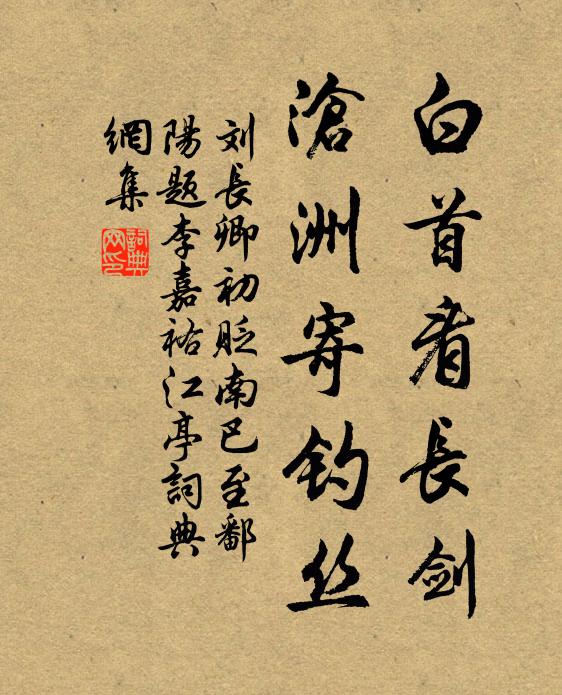 白首看長剑
滄洲寄钓丝
刘長卿初貶南巴至鄱
陽题李嘉祐江亭詞典
網集
詞典網印